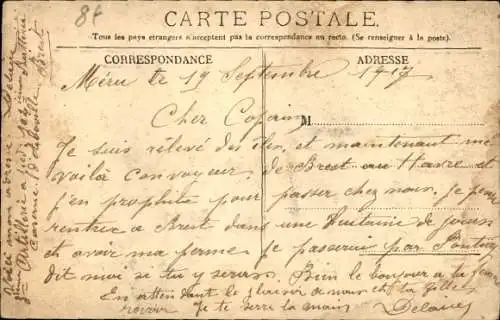 8f
CARTE POSTALE
Tous les pays étrangers n'acceptent pas la correspondance au recto. (Se renseigner à la poste).
CORRESPONDANCE
ADRESSE
Méru le 19 Septembre 1917
Cher Copain
M
Je suis relevé des îles, et maintenant me
voilà convoyeur de Brest au Havre et
j'en profite pour passer chez nous. Je pense
rentrer a Brest dans une huitaine de jours
et avoir ma perme. Je passerai par Pontivy
dit moi si tu y seras. Bien le bonjour a la
En attendant le plaisir de nous
revoir Je te serre la main
Voici mon adresse
Artillerie a pied
Caserne
Brest